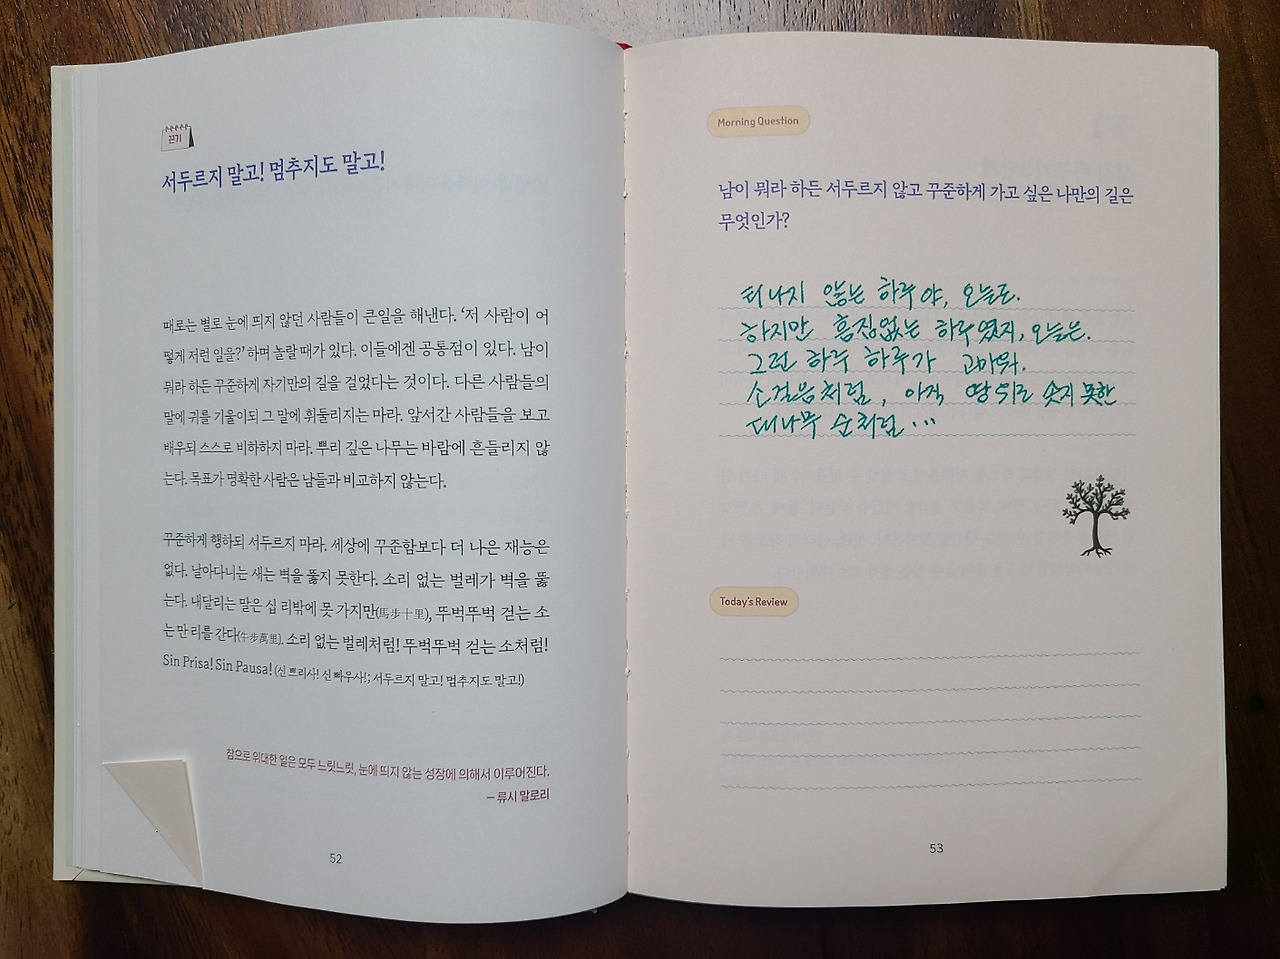 끈기
서두르지 말고! 멈추지도 말고!
때로는 별로 눈에 띄지 않던 사람들이 큰일을 해낸다. ‘저 사람이 어
떻게 저런 일을?’ 하며 놀랄 때가 있다. 이들에겐 공통점이 있다. 남이
뭐라 하든 꾸준하게 자기만의 길을 걸었다는 것이다. 다른 사람들의
말에 귀를 기울이되 그 말에 휘둘리지는 마라. 앞서간 사람들을 보고
배우되 스스로 비하하지 마라. 뿌리 깊은 나무는 바람에 흔들리지 않
는다. 목표가 명확한 사람은 남들과 비교하지 않는다.
꾸준하게 행하되 서두르지 마라. 세상에 꾸준함보다 더 나은 재능은
없다. 날아다니는 새는 벽을 뚫지 못한다. 소리 없는 벌레가 벽을 뚫
는다. 내달리는 말은 십 리밖에 못 가지만(馬步十里), 뚜벅뚜벅 걷는 소
는 만 리를 간다(牛步萬里). 소리 없는 벌레처럼! 뚜벅뚜벅 걷는 소처럼!
Sin Prisa! Sin Pausa! (신 쁘리사! 신 빠우사!; 서두르지 말고! 멈추지도 말고!)
참으로 위대한 일은 모두 느릿느릿, 눈에 띄지 않는 성장에 의해서 이루어진다.
– 류시 말로리
52
Morning Question
남이 뭐라 하든 서두르지 않고 꾸준하게 가고 싶은 나만의 길은
무엇인가?
티나지 않는 하루야, 오늘도.
하지만 흠집없는 하루였지, 오늘은.
그런 하루 하루가 고마워.
소걸음처럼, 아직 땅 위로 솟지 못한
대나무 순처럼...
Today's Review
53